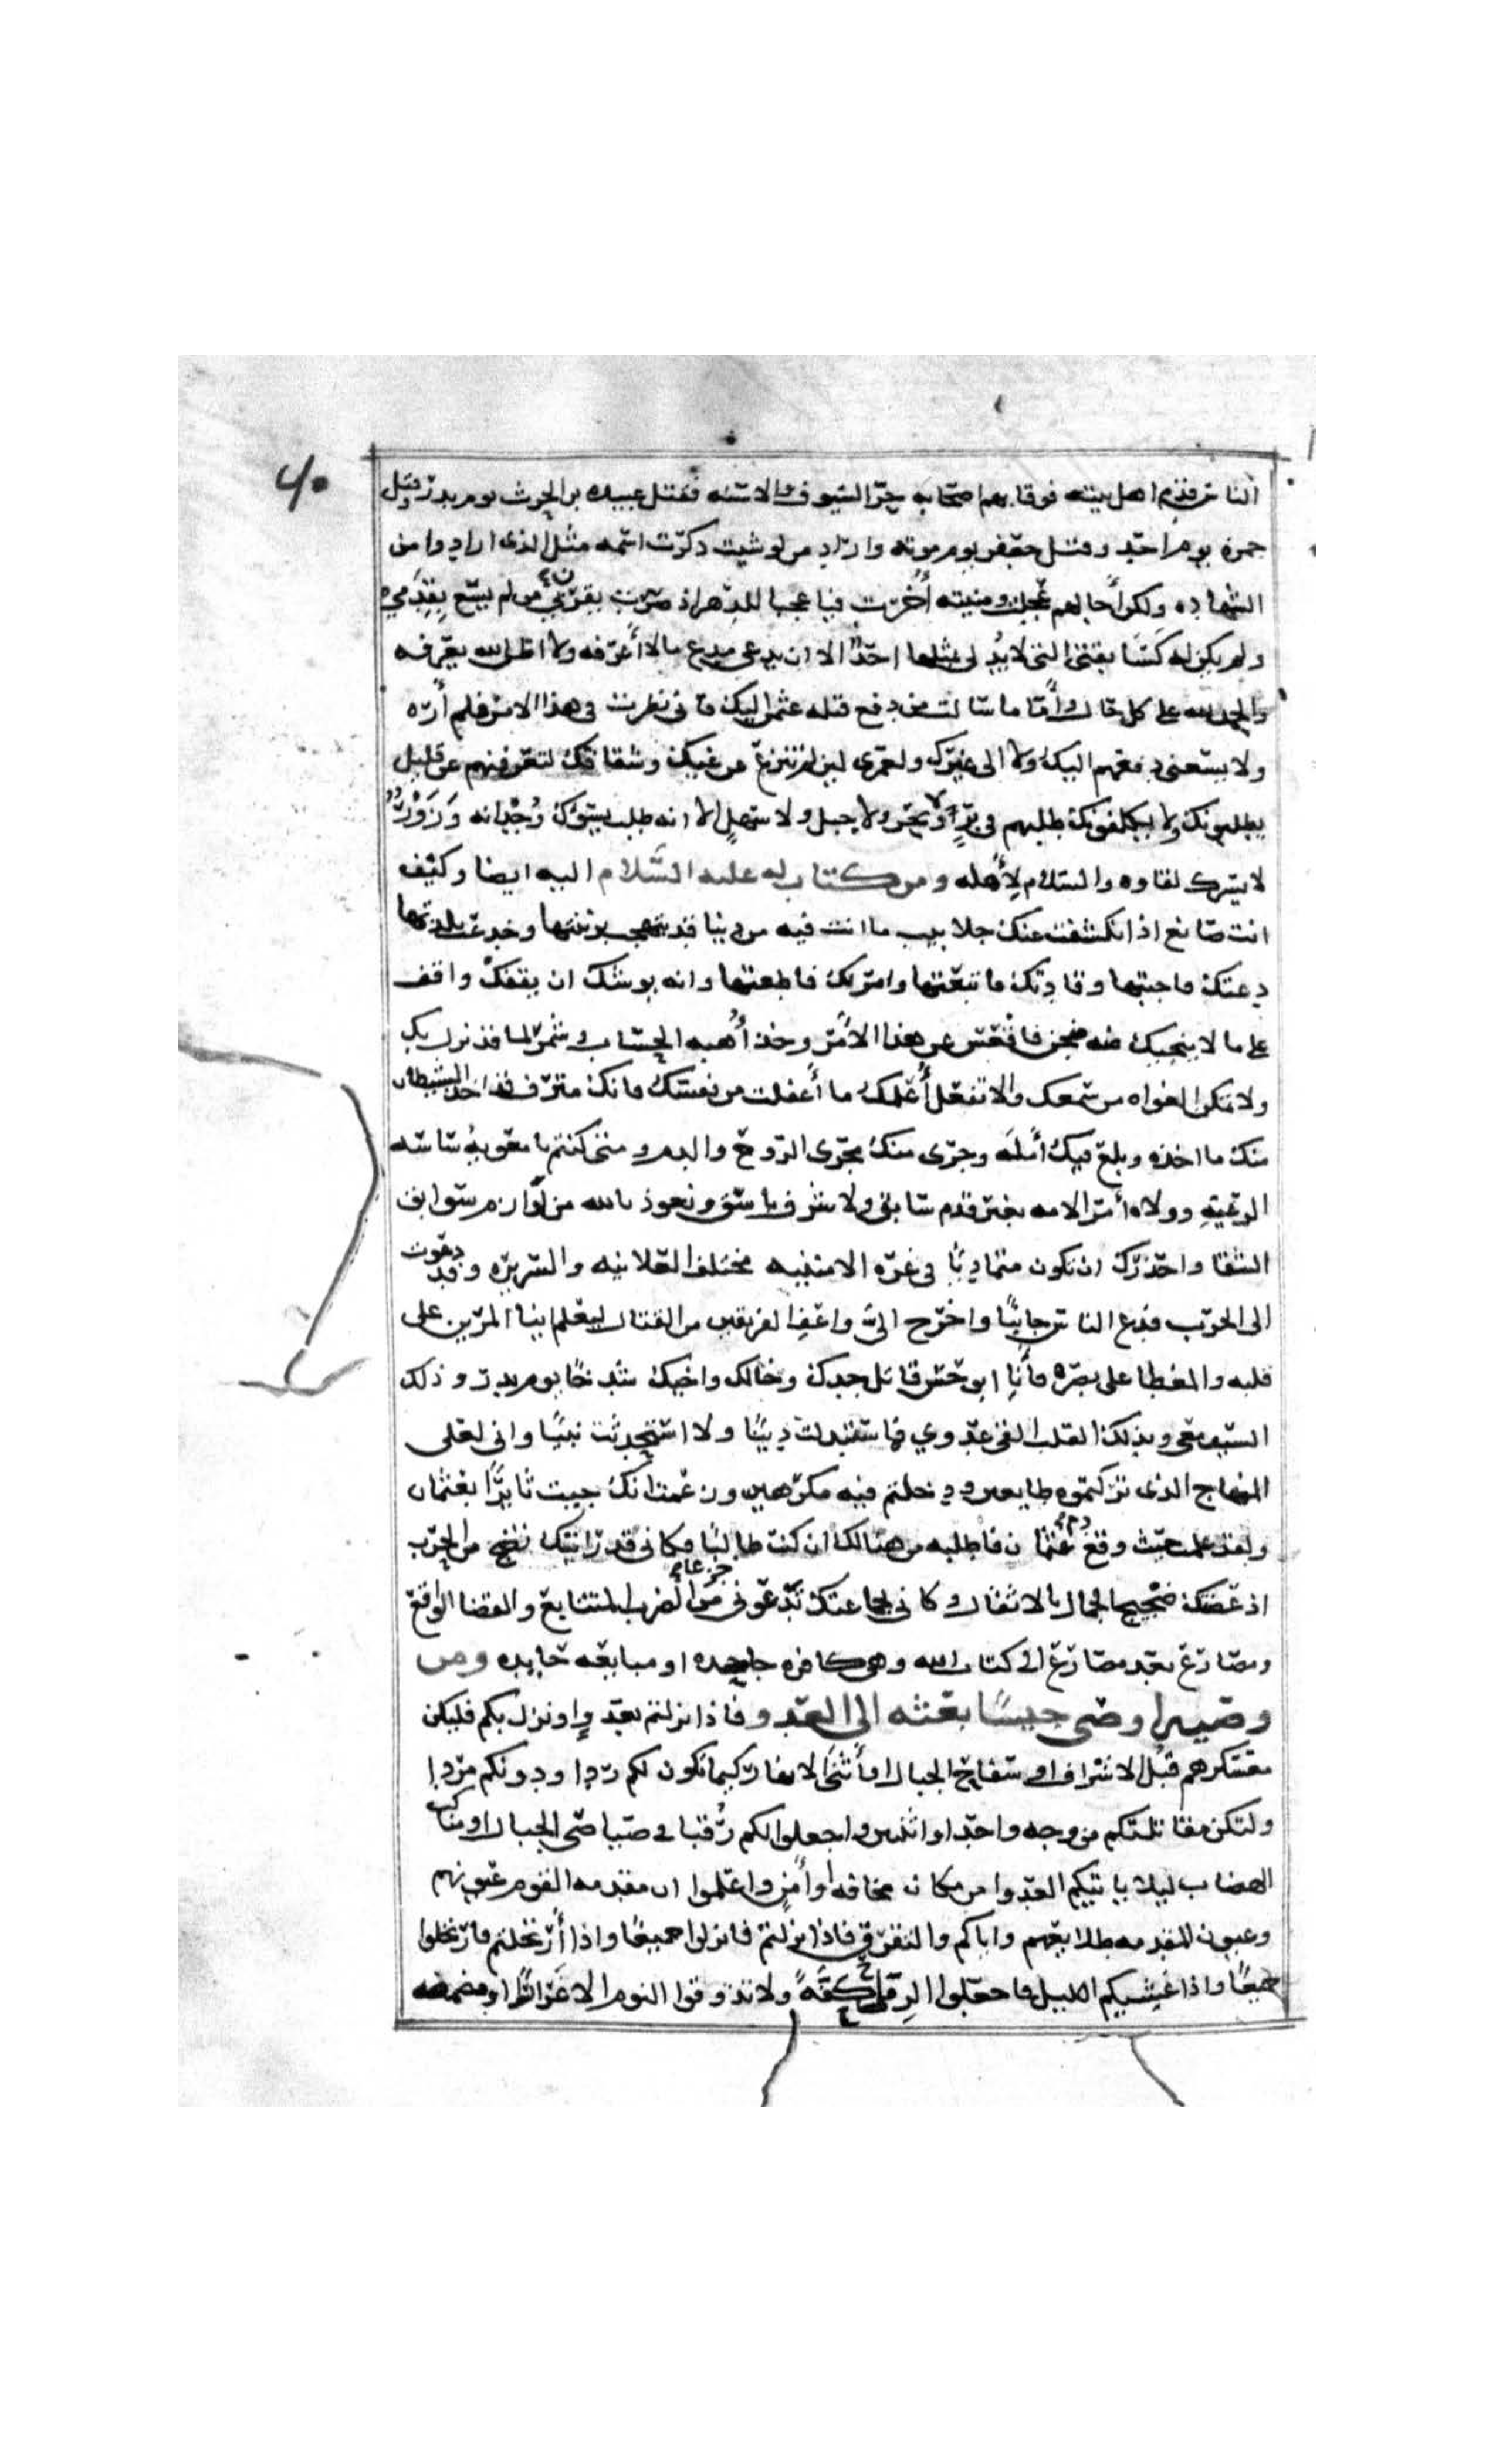 ٤٠
الناس قدم اهل بيته فوقا بهم اصحابه حر السيوف والاسنه فقتل عبيده بن الحرث يوم بدر وقتل
حمزه يوم احد وقتل جعفر يوم موته واراد من لو شيت ذكرت اسمه مثل الذى ارادوا من
الشهاده ولكن أجالهم عجلت ومنيته أخرت فيا عجبا للدهر اذ صرت يقرن بي من لم يسع بقدمي
ولم يكن له كسابقتى التى لا يدلى بمثلها احد الا ان يدعى مدع مالا أعرفه ولا اظن الله يعرفه
والحمد لله على كل حال وأما ما سالت من دفع قتله عثمن اليك فانى نظرت فى هذا الامر فلم أره
ولا يسعنى دفعهم اليك ولا الى غيرك ولعمرى لين لم تنزع عن غيك وشقاقك لتعرفنهم عن قليل
يطلبونك ولا يكلفونك طلبهم في بر ولا بحر ولا جبل ولا سهل الا انه طلب يسوك وجدانه وزور
لا يسرك لقاوه والسلام لأهله ومن كتاب له عليه السلام اليه ايضا وكيف
انت صانع اذا تكشفت عنك جلابيب ما انت فيه من دنيا قد تبهجت بزينتها وخدعت بلذتها
دعتك فاجبتها وقادتك فاتبعتها وامرتك فاطعتها وانه يوشك ان يقفك واقف
على ما لا ينجيك منه مجن فاقعس عن هذا الأمر وخذ أهبه الحساب وشمر لما قد نزل بك
ولا تمكن الغواه من سمعك والا تفعل أعلمك ما أغفلت من نفسك فانك مترف قد اخذ الشيطان
منك ماخذه وبلغ فيك أمله وجرى منك مجرى الروح والدم ومتى كنتم يا معويه ساسه
الرعيه وولاه أمر الامه بغير قدم سابق ولا شرف باسق ونعوذ بالله من لوازم سوابق
الشقا واحذرك ان تكون متماديا فى غره الامنيه مختلف العلانيه والسريره وقد دعوت
الى الحرب فدع الناس جانبا واخرج الى واعف الفريقين من القتال ليعلم اينا المرين على
قلبه والمغطا على بصره فأنا ابو حسن قاتل جدك وخالك واخيك شدخا يوم بدر وذلك
السيف معى وبذلك القلب القى عدوي ما استبدلت دينا ولا استحدثت نبيا وانى لعلى
المنهاج الذى تركتموه طايعين ودخلتم فيه مكرهين وزعمت انك جيت ثايرا بعثمان
ولقد علمت حيث وقع دم عثمان فاطلبه من هنالك ان كنت طالبا فكانى قد رايتك تضج من الحرب
اذ عضتك ضجيج الجمال بالاثقال وكانى بجماعتك تدعونى جزعا من الضرب المتتابع والقضا الواقع
ومصارع بعد مصارع الى كتاب الله وهى كافره جاحده او مبايعه حايده ومن
وصيه له وصى جيشا بعثه الى العدو فاذا نزلتم بعدو او نزل بكم فليكن
معسكرهم قبل الاشراف او سفاح الجبال او أثنى الانهار كيما تكون لكم ردا ودونكم مردا
ولتكن مقاتلتكم من وجه واحد او اثنين واجعلوا لكم رقبا فى صياصى الجبال ومناكب
الهضاب ليلا ياتيكم العدوا من مكان مخافه أو أمن واعلموا ان مقدمه القوم عيونهم
وعيون المقدمه طلايعهم واياكم والتفرق فاذا نزلتم فانزلوا جميعا واذا أرتحلتم فارتحلوا
جميعا واذا غشيكم الليل فاجعلوا الرماح كفة ولا تذوقوا النوم الا غرارا او مضمضه